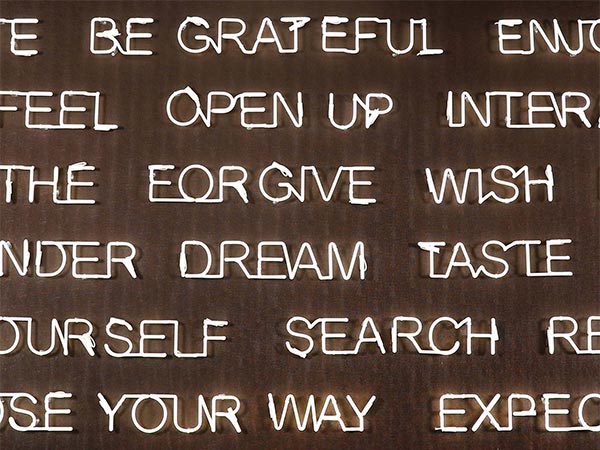 E BE GRATEFUL ENJO
FEEL OPEN UP INTERA
THE FORGIVE WISH
NDER DREAM TASTE
OURSELF SEARCH RE
OSE YOUR WAY EXPEC